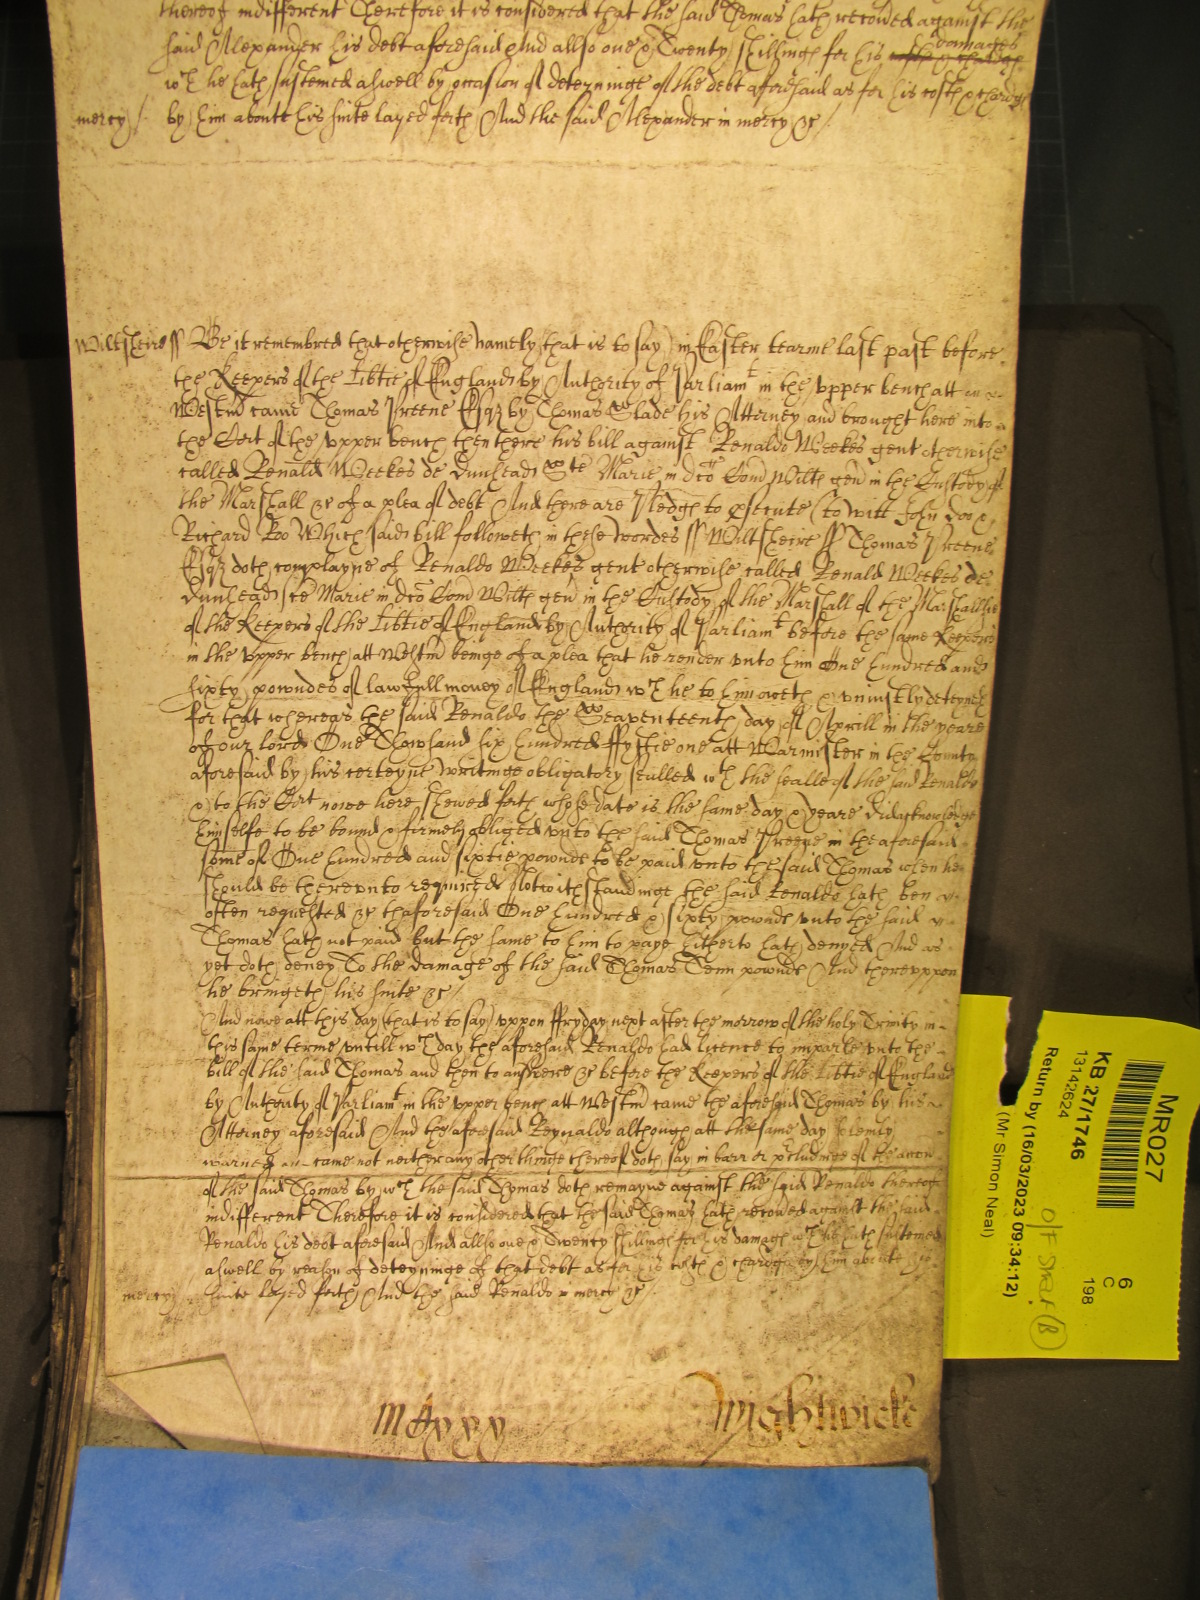 thereof indifferent Therefore it is considered that the said Thomas hath recoued against the
said Alexander his debt aforesaid And allso one & Twenty shillings for his damages
wch he hath susteined aswell by occasion of deteyninge of the debt aforesaid as for his costs & chardgs
mercy by him aboute his suite layed forth And the said Alexander in mercy &c
Wiltsheire ss Be it remembred that otherwise namely (that is to say) in Easter tearme last past before
the Keepers of the Libtie of England by Authority of Parliamt in the vpper bench att
Westm came Thomas Greene Esqr by Thomas Slade his Atterney and brought here into
the Cort of the vpper bench then there his bill against Renaldo Weekes gent otherwise
called Renald Weekes de Dunhead Ste Marie in dco Com Wilts gen in the Custody of
the Marshall &c of a plea of debt And there are Pledgs to psecute (to witt John Doo &
Richard Roo Which said bill followeth in these wordes ss Wiltsheire ss Thomas Greene
Esqr doth complayne of Renaldo Weekes gent otherwise called Renald Weekes de
Dunhead ste Marie in dco Com Wilts gen in the Custody of the Marshall of the Marshallsie
of the Keepers of the Libtie of England by Authority of Parliamt before the same Keepers
in the vpper bench att Westm beinge of a plea that he render vnto him One hundred and
sixty powndes of lawfull money of England wch he to him oweth & vniustly deteyneth
for that whereas the said Renaldo the Seaventeenth day of Aprill in the yeare
of our lord One Thowsand six hundred ffyftie one att Warmister in the County
aforesaid by his certeyne writinge obligatory sealled wth the sealle of the said Renaldo
& to the Cort nowe here shewed forth whose date is the same day & yeare did acknowledge
himselfe to be bound & firmely obliged vnto the said Thomas Greene in the aforesaid
some of One hundred and sixtie pownds to be paid vnto the said Thomas when he
should be therevnto required Notwithstandinge the said Renaldo hath ben
often requested &c thaforesaid One hundred & sixty pownds vnto the said
Thomas hath not paid but the same to him to paye hitherto hath denyed And as
yet doth deney To the damage of the said Thomas Tenn pownds And therevppon
he bringeth his suite &c
And nowe att this day (that is to say) vppon ffryday next after the morrow of the holy Trinity in
this same terme vntill wch day the aforesaid Renaldo had licence to imparle vnto the
bill of the said Thomas and then to answere &c before the Keepers of the Libtie of England
by Authority of Parliamt in the vpper bench att Westm came the aforesaid Thomas by his
Attorney aforesaid And the aforesaid Reynaldo although att the same day solemly
warned came not neither any other thinge thereof doth say in barr or pcludinge of the accon
of the said Thomas by wch the said Thomas doth remayne against the said Renaldo thereof
indifferent Therefore it is considered that the said Thomas hath recoued against the said
Renaldo his debt aforesaid And allso one & Twenty shillings for his damags wch he hath susteined
aswell by reason of deteyninge of that debt as for his costs & chardges by him aboute his
mercy suite layed forth And the said Renaldo in mercy &c
Wightwicke
MR027
KB 27/1746
13142624
Return by (16/03/2023 09:34:12)
(Mr Simon Neal)
6
C
198
O/F Shelf B